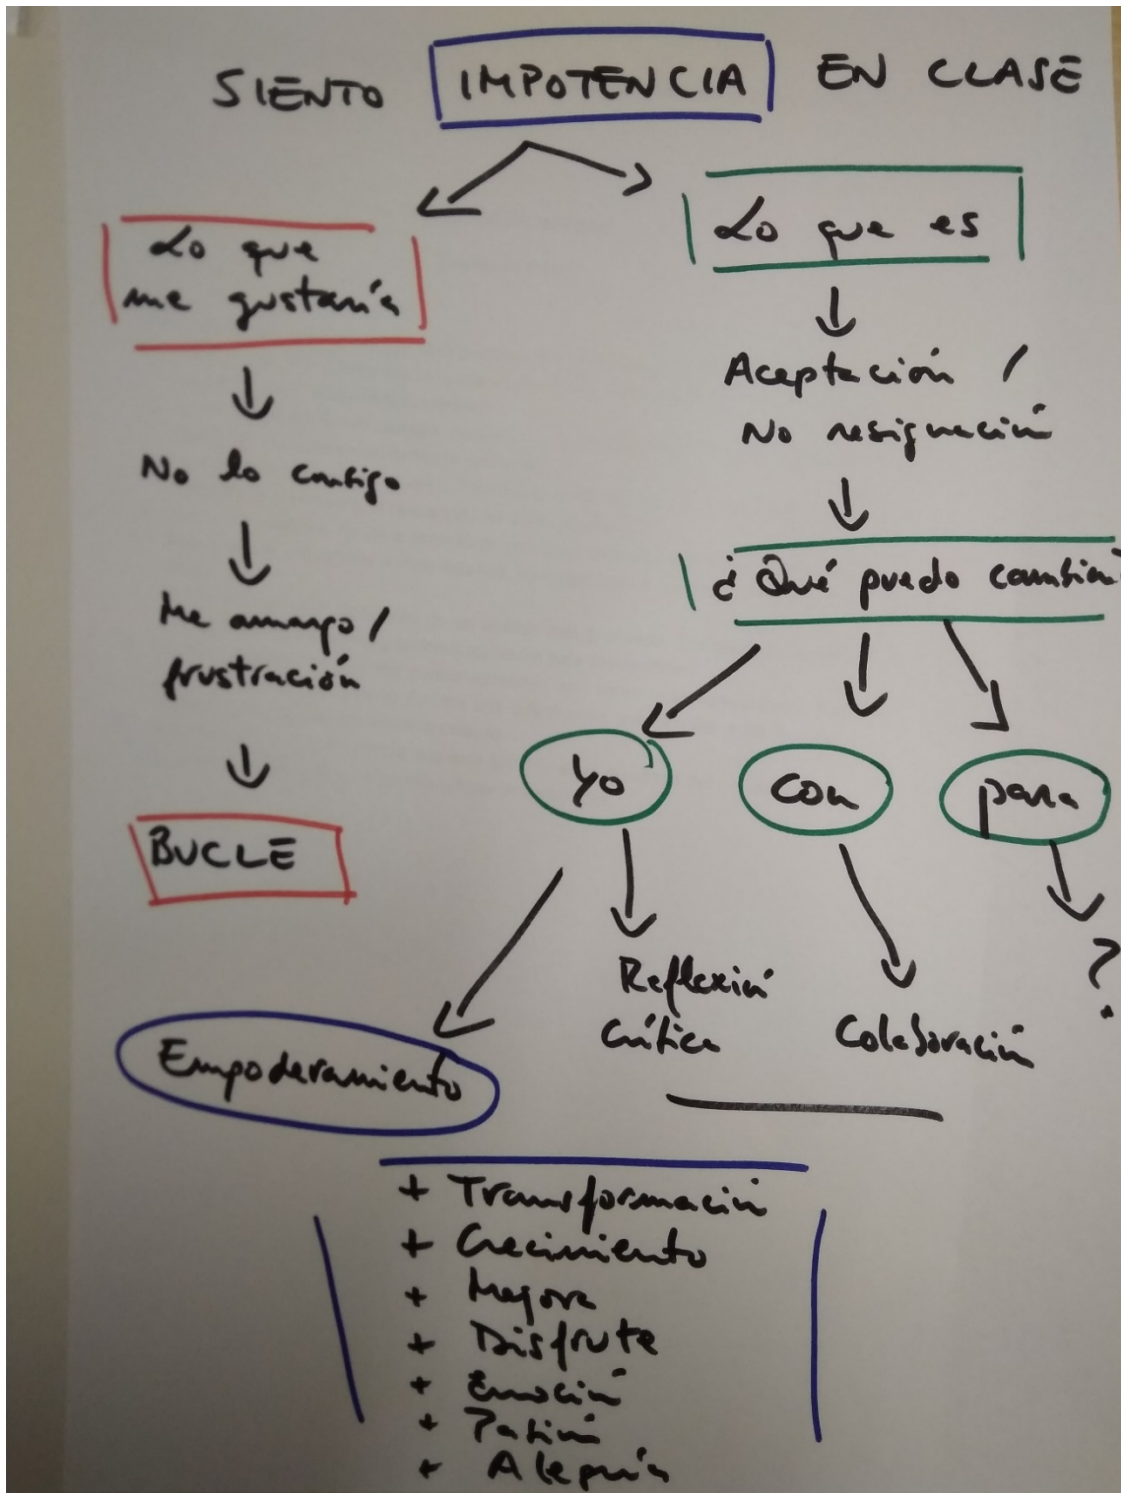 SIENTO IMPOTENCIA EN CLASE
Lo que
me gustaría
No lo consigo
Me amargo /
frustración
BUCLE
Lo que es
Aceptación /
No resignación
¿Qué puedo cambiar?
yo
con
para
Empoderamiento
Reflexión
crítica
Colaboración
?
+ Transformación
+ Crecimiento
+ Mejora
+ Disfrute
+ Emoción
+ Pasión
+ Alegría